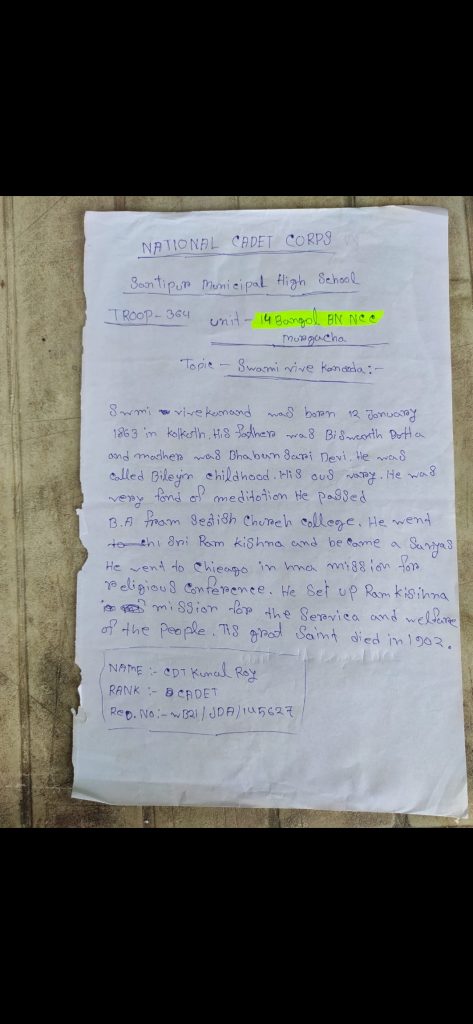 NATIONAL CADET CORPS
Santipur Municipal High School
TROOP - 364 Unit - 14 Bangol BN NCC
Muragacha
Topic - Swami vive Kanada :-
Swmi vivekanand was born 12 January
1863 in kolkath. His fathers was Biswarth Datta
and mothers was Bhabun Sari Devi. He was
called Bileyin childhood. His ous vary. He was
very fond of meditation He passed
B.A from Sedish Church college. He went
Sri Ram kishna and became a Sanyas
He went to Chicago in mission for
religious Conference. He Set up Ram kisihna
mission for the Serevica and welfare
of the people. Tis grat Saint died in 1902.
NAME :- CDT Kunal Roy
RANK :- CADET
Reg. No:- WB21/JDA/145627